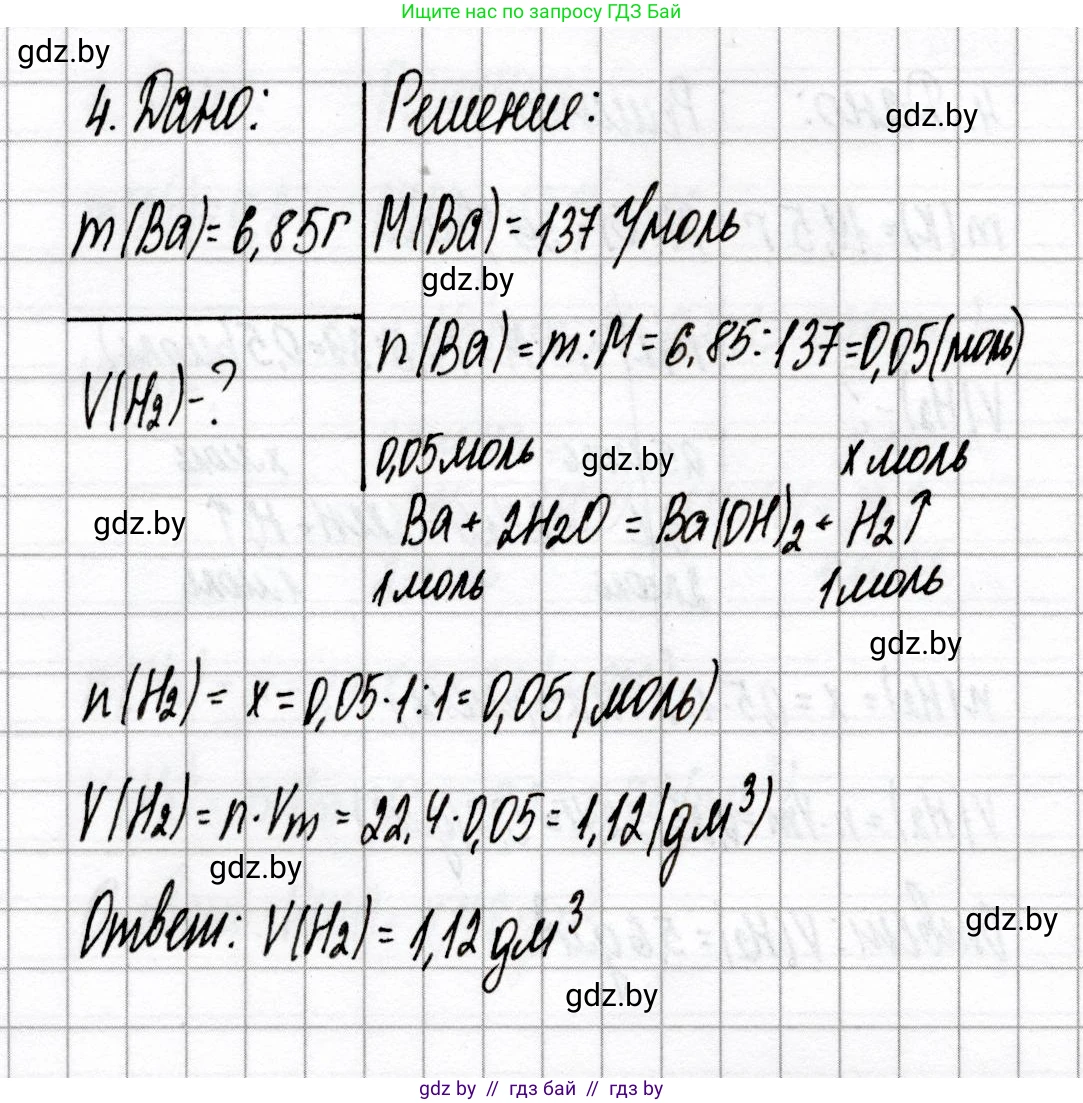 Ищите нас по запросу ГДЗ Бай
gdz.by
4. Дано:
Решение:
gdz.by
m(Ba)=6,85г
M(Ba)=137 г/моль
gdz.by
n(Ba)=m:M=6,85:137=0,05(моль)
V(H₂)-?
0,05моль
gdz.by
x моль
gdz.by
Ba+2H₂O=Ba(OH)₂+H₂↑
1моль
1моль
gdz.by
n(H₂)=x=0,05·1:1=0,05(моль)
V(H₂)=n·Vm=22,4·0,05=1,12(дм³)
gdz.by
Ответ: V(H₂)=1,12 дм³
gdz.by
gdz.by
gdz by // гдз бай // гдз by